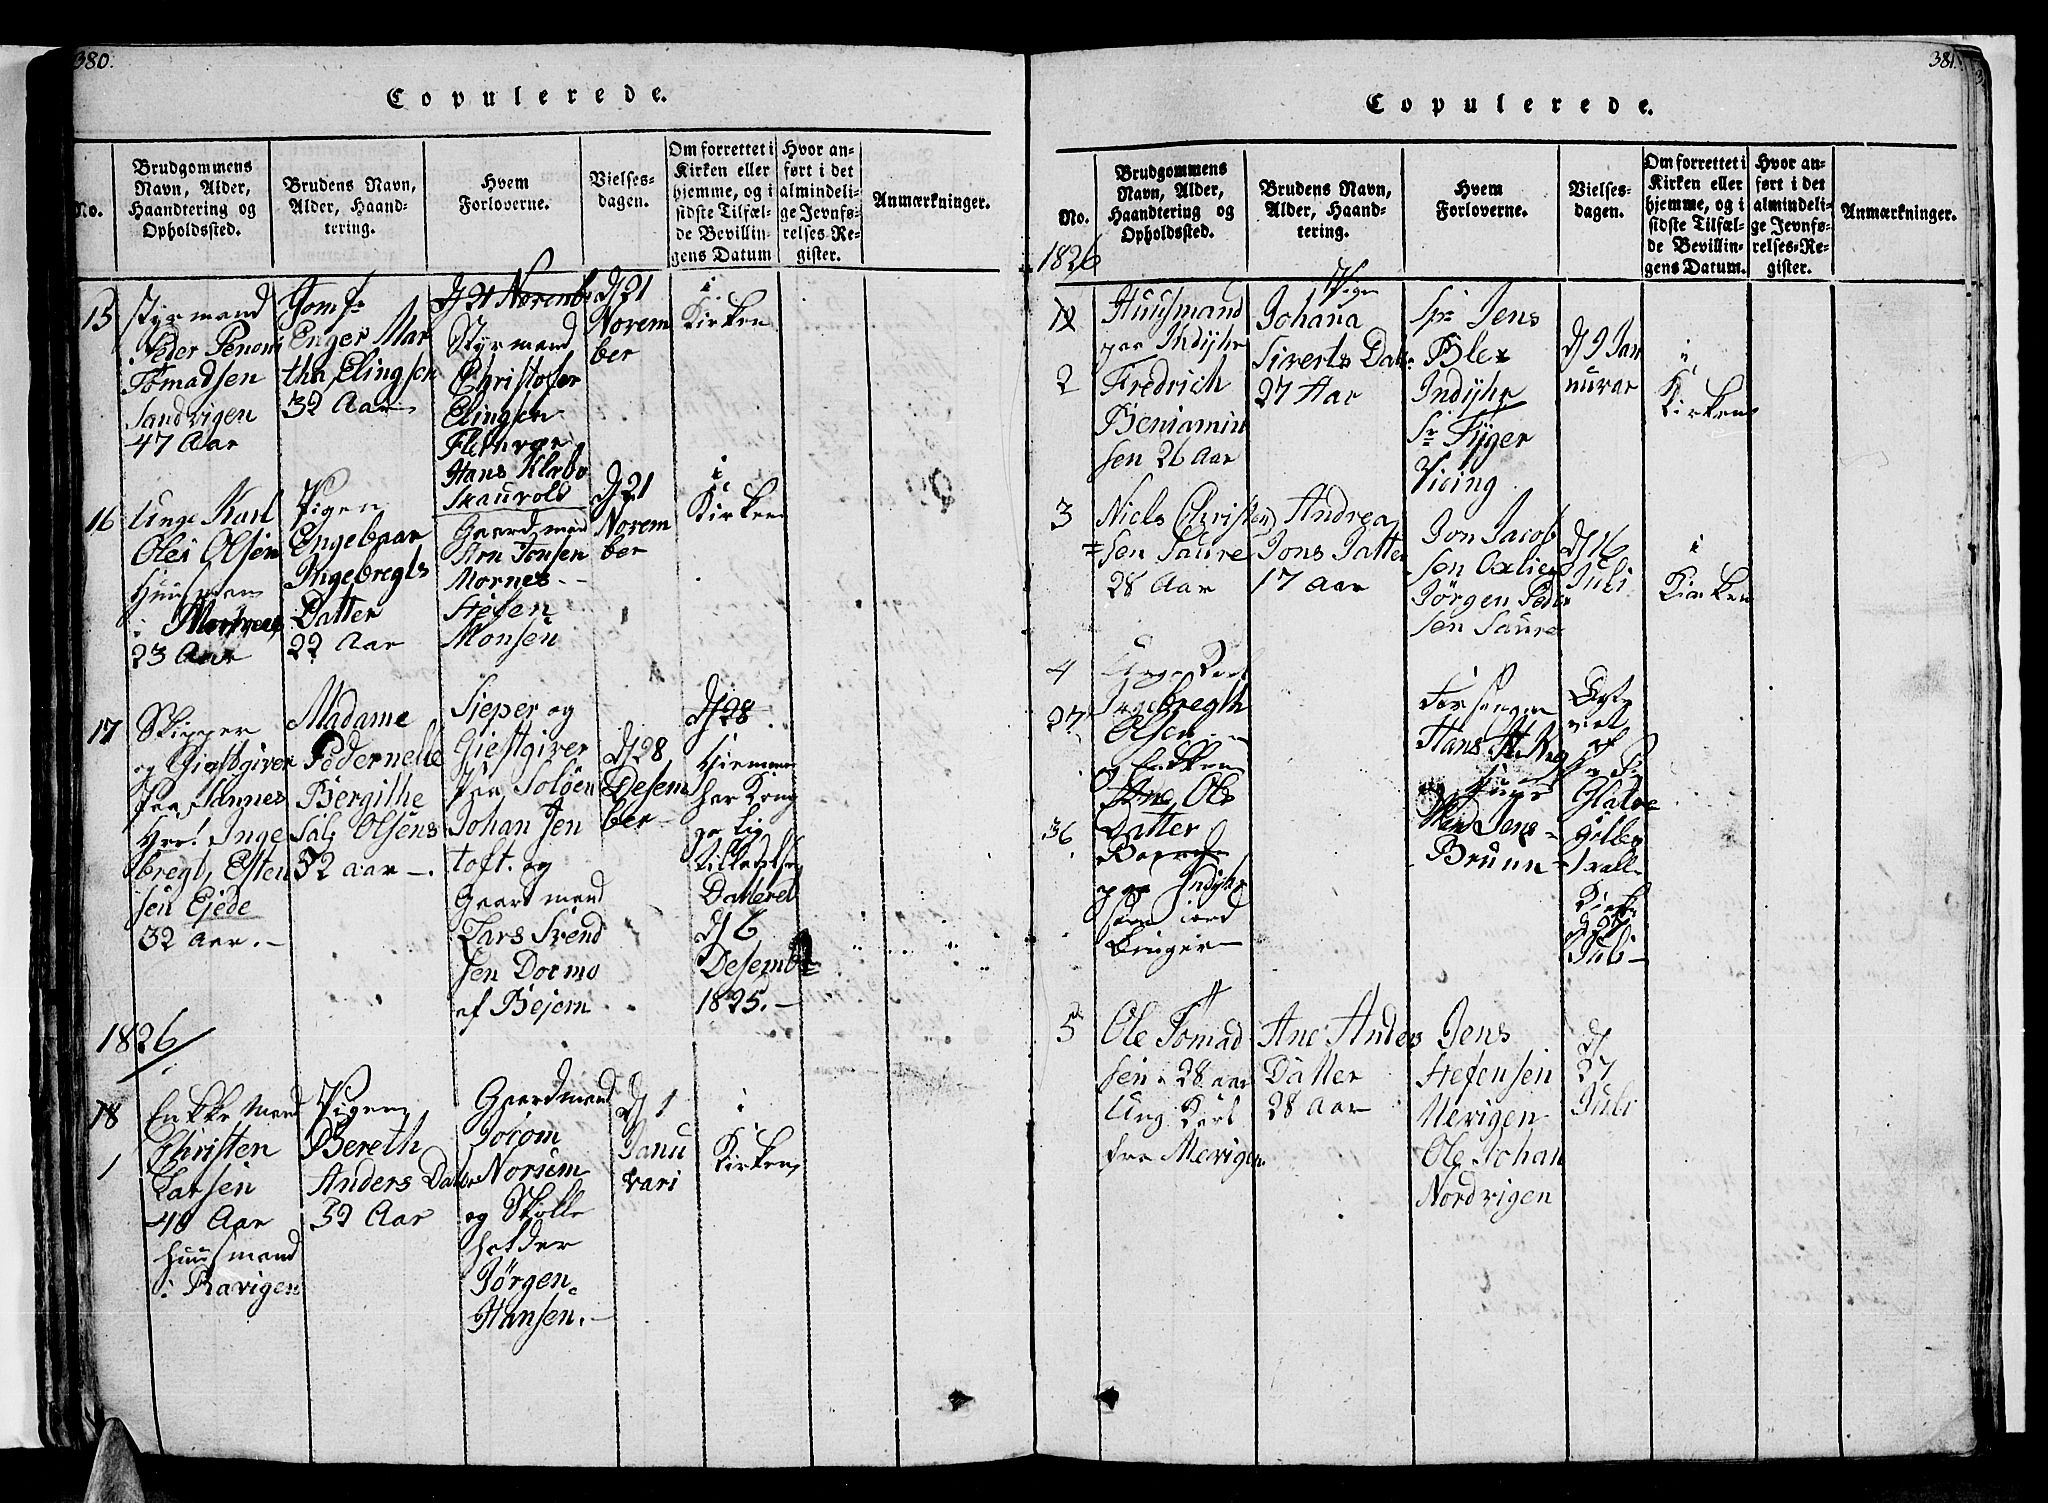 380.
Copulerede.
No.
Brudgommens
Navn, Alder,
Haandtering og
Opholdssted.
Brudens Navn,
Alder, Haand-
tering.
Hvem
Forloverne.
Vielses-
dagen.
Om forrettet i
Kirken eller
hjemme, og i
sidste Tilfæl-
de Bevillin-
gens Datum
Hvor an-
ført i det
almindeli-
ge Jevnfø-
relses-Re-
gister.
Anmærkninger.
15
Styrmand
Peder
Tomadsen
Sandvigen
47 Aar
Jomfr
Enger Mar
tha Elingsen
32 Aar
Styrmand
Christofer
Elingsen
Hans Klæbo
Skaurold
21
Novem
ber
i
Kirken
16
Unge Karl
Ole Olsen
Huusman
i
23 Aar
Pigen
Engebaar
Ingebregts
Datter
22 Aar
Gaardman
Arn Jonsen
Mornes
Stefen
Monsen
21
Novem
ber
i
Kirken
17
Skipper
og Giestgiver
Paa Sannes
Herr Inge
bregt Esten
sen Ejede
32 Aar
Madame
Pedernelle
Bergithe
Olsens
32 aar
Sieper og
Giestgiver
Paa Soløen
Johan Jen
toft og
Gaardmand
Lars Svend
sen Dormo
af Bejern
28
Desem
ber
28
Hiemme
Kong
ge lig
Datteret
6
Desember
1825.
1826
18
1
Enkke Mand
Christen
Larsen
40 Aar
Huusmand
i Ravigen
Pigen
Bereth
Anders Datter
32 Aar
Gaardmand
Jocom
Norum
og Skolle
holder
Jørgen
Hansen.
1
Janu
vari
i
Kirken
381.
Copulerede.
No.
Brudgommens
Navn, Alder,
Haandtering og
Opholdssted.
Brudens Navn,
Alder, Haand-
tering.
Hvem
Forloverne.
Vielses-
dagen.
Om forrettet i
Kirken eller
hjemme, og i
sidste Tilfæl-
de Bevillin-
gens Datum.
Hvor an-
ført i det
almindeli-
ge Jevnfø-
relses-Re-
gister.
Anmærkninger.
1826
2
Huusmand
paa Indijhr
Fredrich
Beniamin
sen 26 Aar
Pigen
Johana
Siverts Datter
27 Aar
Jens
Blex
Indijhr
Sr Fyger
Vicing
9 Jan
nuvar
i
Kirken
3
Niels Christen
sen Saure
28 Aar
Andrea
Jons Datter
17 aar
Jon Jacob
sen
Jørgen Peder
sen Saure
16
Juli
i
Kirken
4
27
36
Unge Karl
Ingebregth
Olsen
og Enkken
Ane Ols
Datter
paa Indijhr
Hans
Jens
Brunn
af
Gilles
kaall
Kirke
27
Juli
5
Ole Tomad
sen 28 aar
Ung Karl
fra Mevigen
Ane Anders
Datter
28 Aar
Jens
Stefensen
Mevigen
Ole Johan
Nordvigen
27
Juli